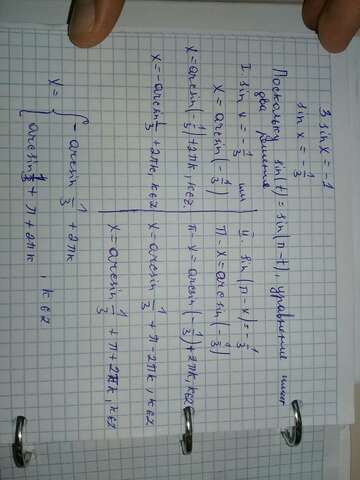 3 sin x = -1
sin x = -1/3
Поскольку sin(t) = sin(π-t), уравнение имеет
два решения
I. sin x = -1/3 или
x = arcsin(-1/3)
x = arcsin(-1/3) + 2πk, k∈z
x = -arcsin 1/3 + 2πk, k∈z
II. sin(π-x) = -1/3
π - x = arcsin(-1/3)
π - x = arcsin(-1/3) + 2πk, k∈z
x = arcsin 1/3 + π - 2πk, k∈z
x = arcsin 1/3 + π + 2πk, k∈z
x = { -arcsin 1/3 + 2πk
arcsin 1/3 + π + 2πk , k∈z